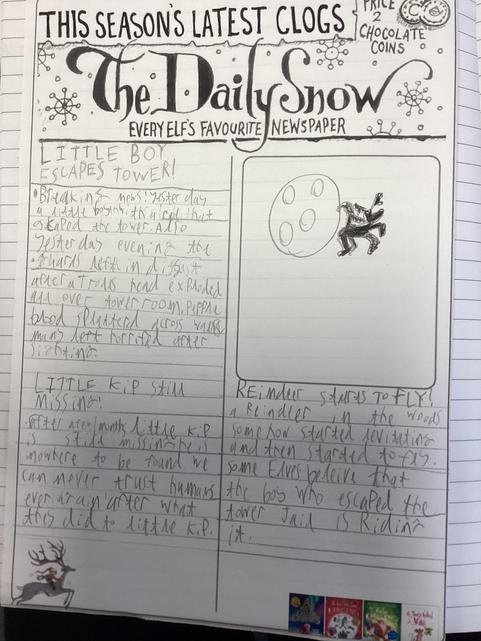 THIS SEASON'S LATEST CLOGS
PRICE
2
CHOCOLATE
COINS
The Daily Snow
EVERY ELF'S FAVOURITE NEWSPAPER
LITTLE BOY
ESCAPES TOWER!
•Breaking news! Yesterday
a little boy with a red hat
escaped the tower. Also
yesterday evening the
•guards left in disgust
after a Trolls head exploded
all over tower room, Purple
blood splatterd across walls
many left horrifed after
sighting.
LITTLE KIP Still
Missing!
•After a few months little Kip
is still missing he is
nowhere to be found we
can never trust humans
ever again after what
they did to little KIP.
REindeer starts TO FLY!
a Reindeer in the woods
somehow started levitating
and then started to fly.
some Elves beleive that
the boy who escaped the
tower Jail is Riding
it.